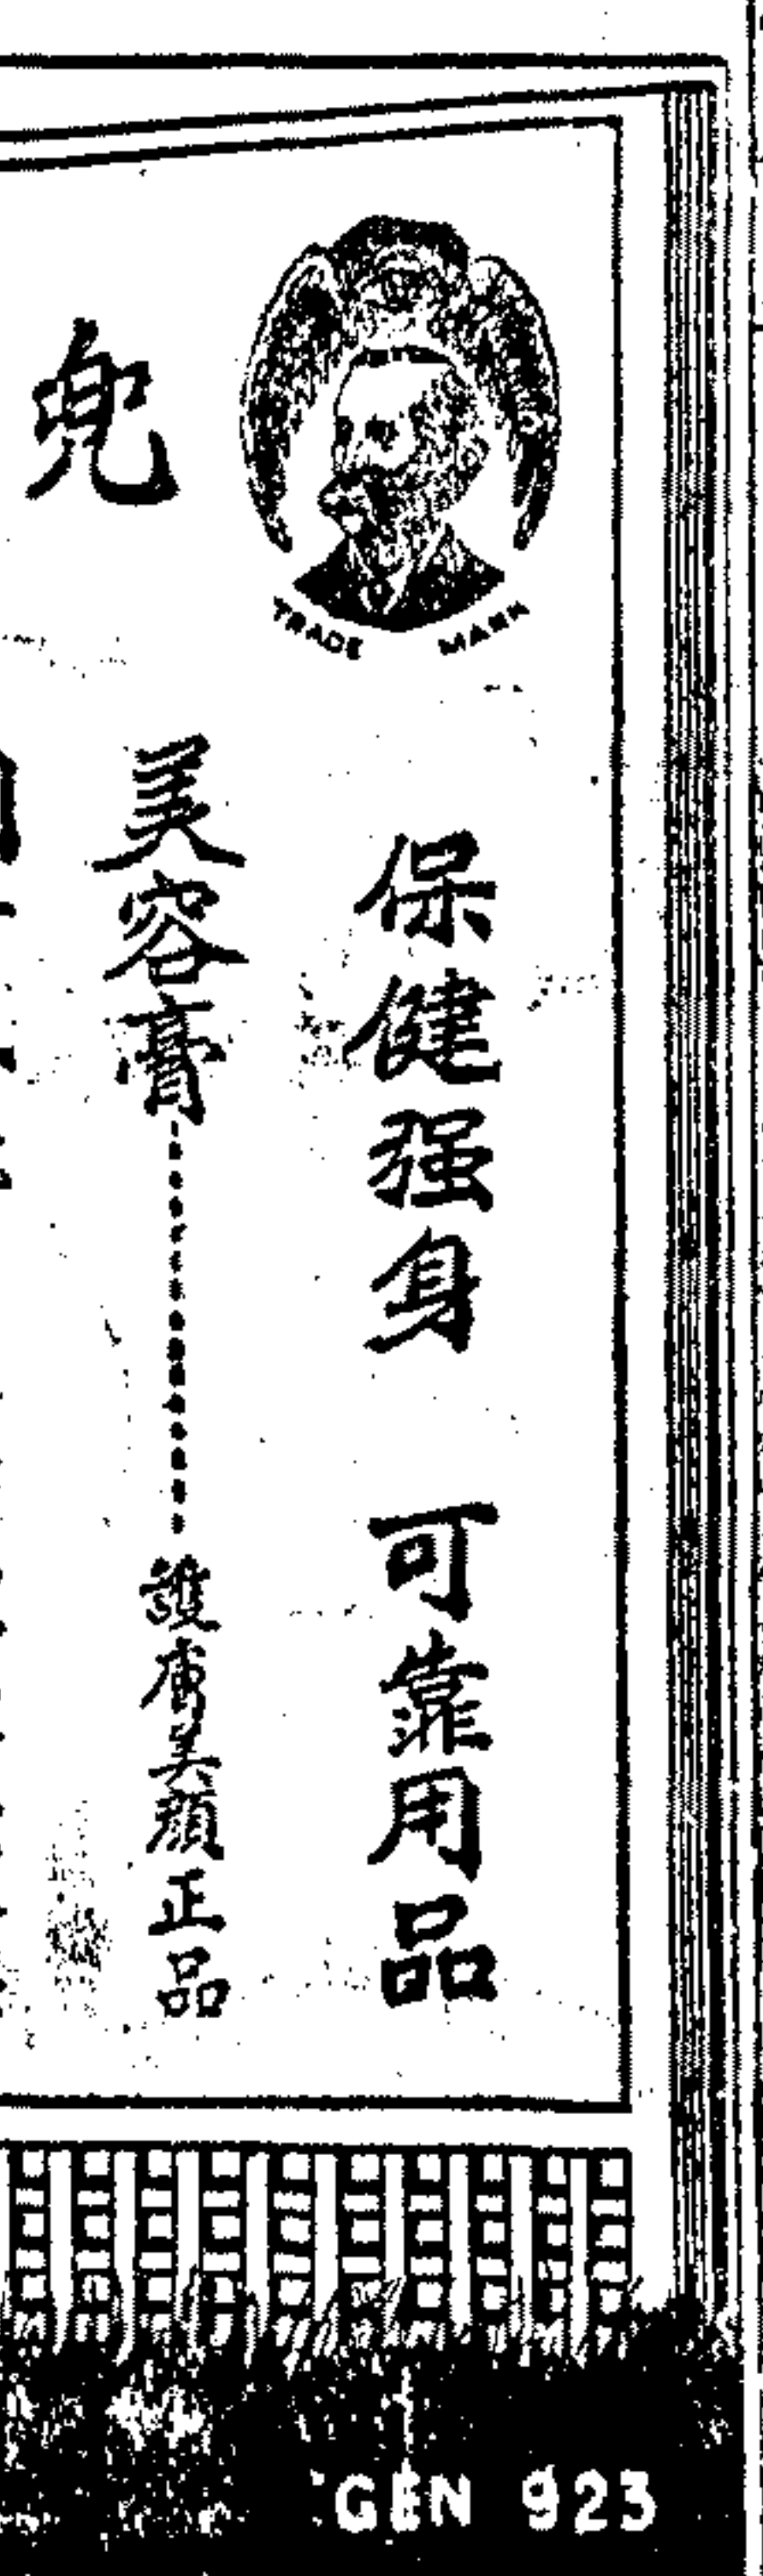 TRADE MARK
保健强身 可靠用品
兜
美容膏............護膚美顏正品
GEN 923